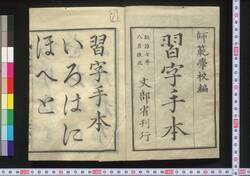 師範學校編
習字手本
明治七年
八月改正
文部省刊行
習字手本
いろはに
ほへと